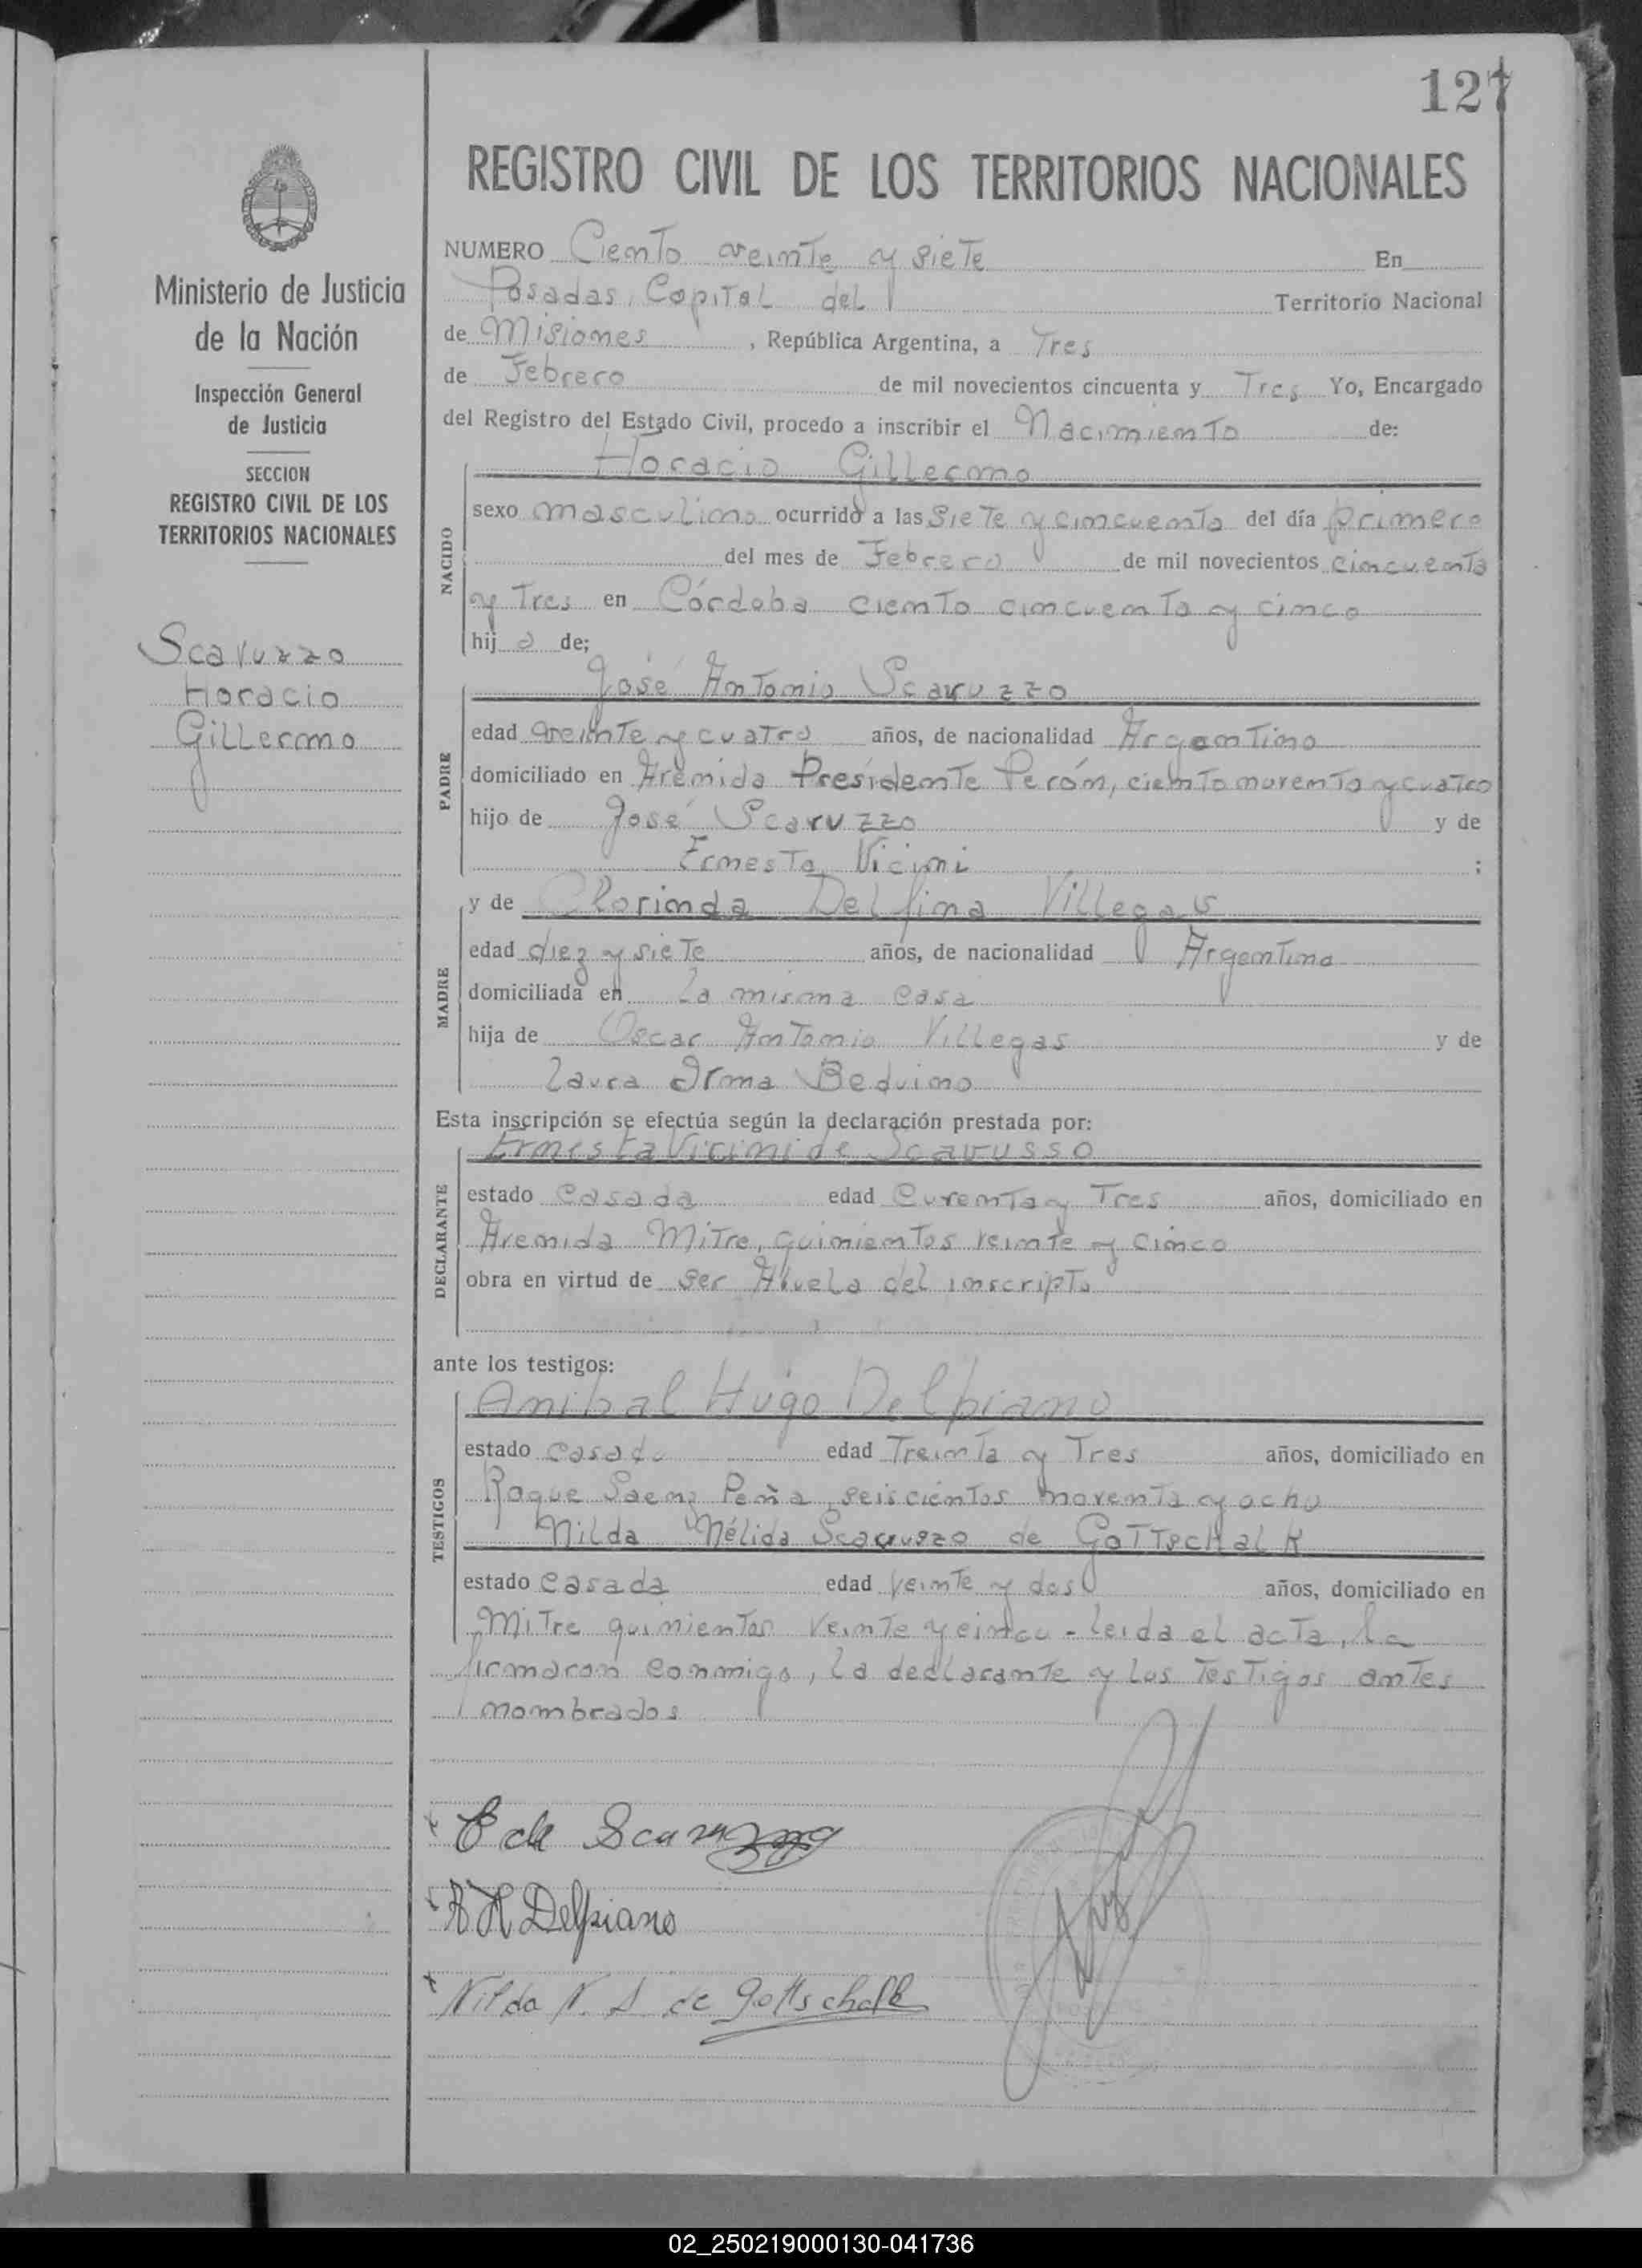 127
REGISTRO CIVIL DE LOS TERRITORIOS NACIONALES
Ministerio de Justicia
de la Nación
Inspección General
de Justicia
SECCION
REGISTRO CIVIL DE LOS
TERRITORIOS NACIONALES
Scavuzzo
Horacio
Gillermo
NUMERO Ciento veinte y siete En
Posadas, Capital del Territorio Nacional
de Misiones, República Argentina, a Tres
de Febrero de mil novecientos cincuenta y Tres Yo, Encargado
del Registro del Estado Civil, procedo a inscribir el Nacimiento de:
Horacio Gillermo
NACIDO
sexo masculino ocurrido a las siete y cincuenta del día primero
del mes de Febrero de mil novecientos cincuenta
y Tres en Córdoba ciento cincuenta y cinco
hijo de;
PADRE
José Antonio Scavuzzo
edad veinte y cuatro años, de nacionalidad Argentino
domiciliado en Avenida Presidente Perón, ciento noventa y cuatro
hijo de José Scavuzzo y de
Ernesta Vicini ;
MADRE
y de Clorinda Delfina Villegas
edad diez y siete años, de nacionalidad Argentina
domiciliada en La misma casa
hija de Oscar Antonio Villegas y de
Laura Irma Beduino
Esta inscripción se efectúa según la declaración prestada por:
DECLARANTE
Ernesta Vicini de Scavusso
estado casada edad Curenta y Tres años, domiciliado en
Avenida Mitre, quinientos veinte y cinco
obra en virtud de ser Abuela del inscripto
ante los testigos:
TESTIGOS
Anibal Hugo Delpiano
estado casado edad Treinta y Tres años, domiciliado en
Roque Saenz Peña, seiscientos noventa y ocho
Nilda Nélida Scavuzzo de Gottschalk
estado casada edad veinte y dos años, domiciliado en
Mitre quinientos veinte y cinco - leida el acta, la
firmaron conmigo, la declarante y los Testigos antes
nombrados
E de Scavuzzo
A H Delpiano
Nilda N. S. de Gottschalk
02_250219000130-041736